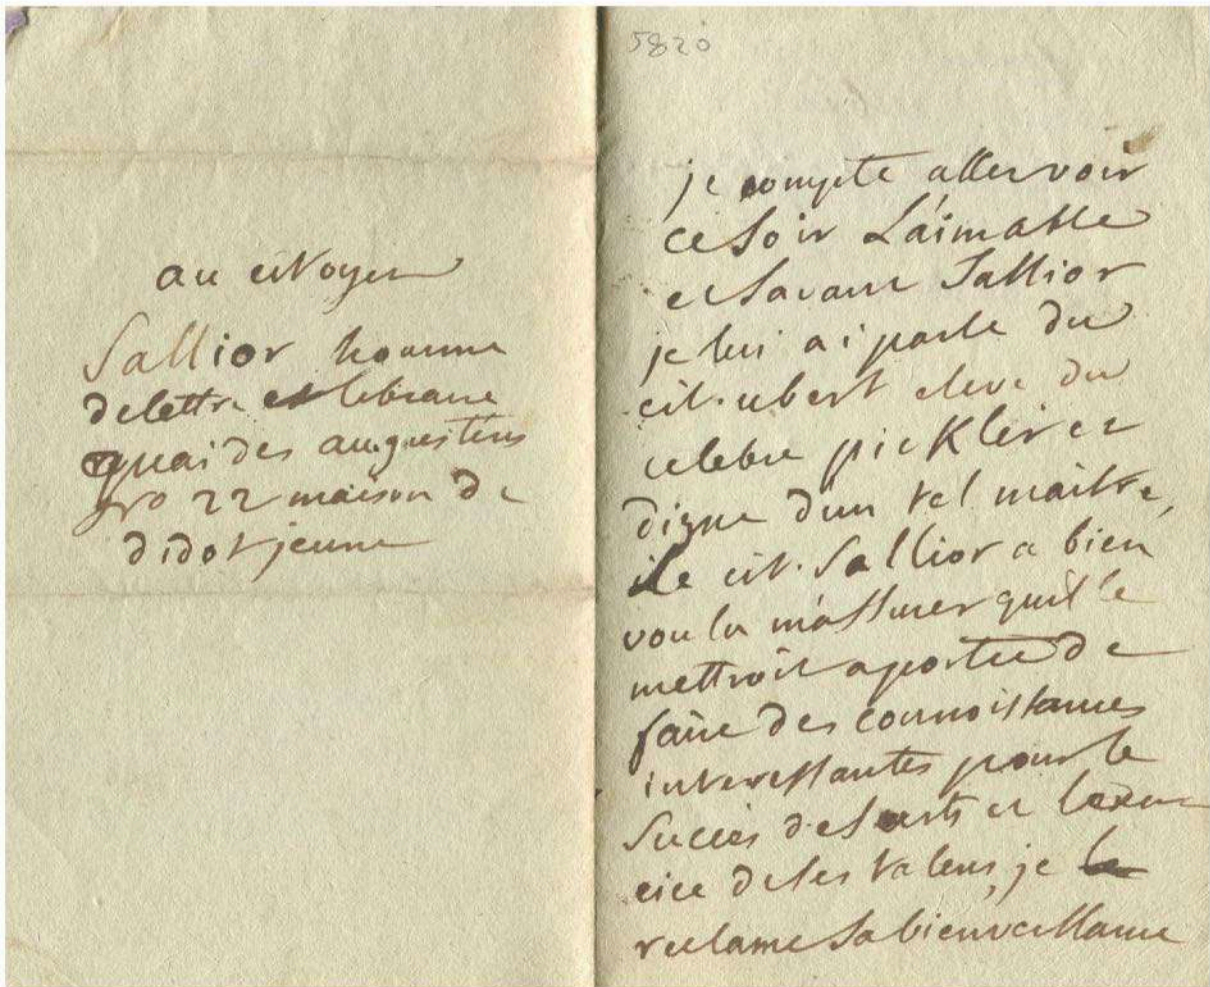 au citoyen
Sallior homme
de lettre et libraire
quai des augustins
nro 22 maison de
didot jeune
5820
je compte aller voir
ce soir L'aimable
et savant Sallior
je lui ai parlé du
cit. ubert eleve du
celebre pickler et
digne d'un tel maitre,
le cit. Sallior a bien
voulu m'assurer quil le
mettroit a portée de
faire des connoissances
interessantes pour le
succès des arts et lexer
cice de ses talens, je
reclame sa bienveillance